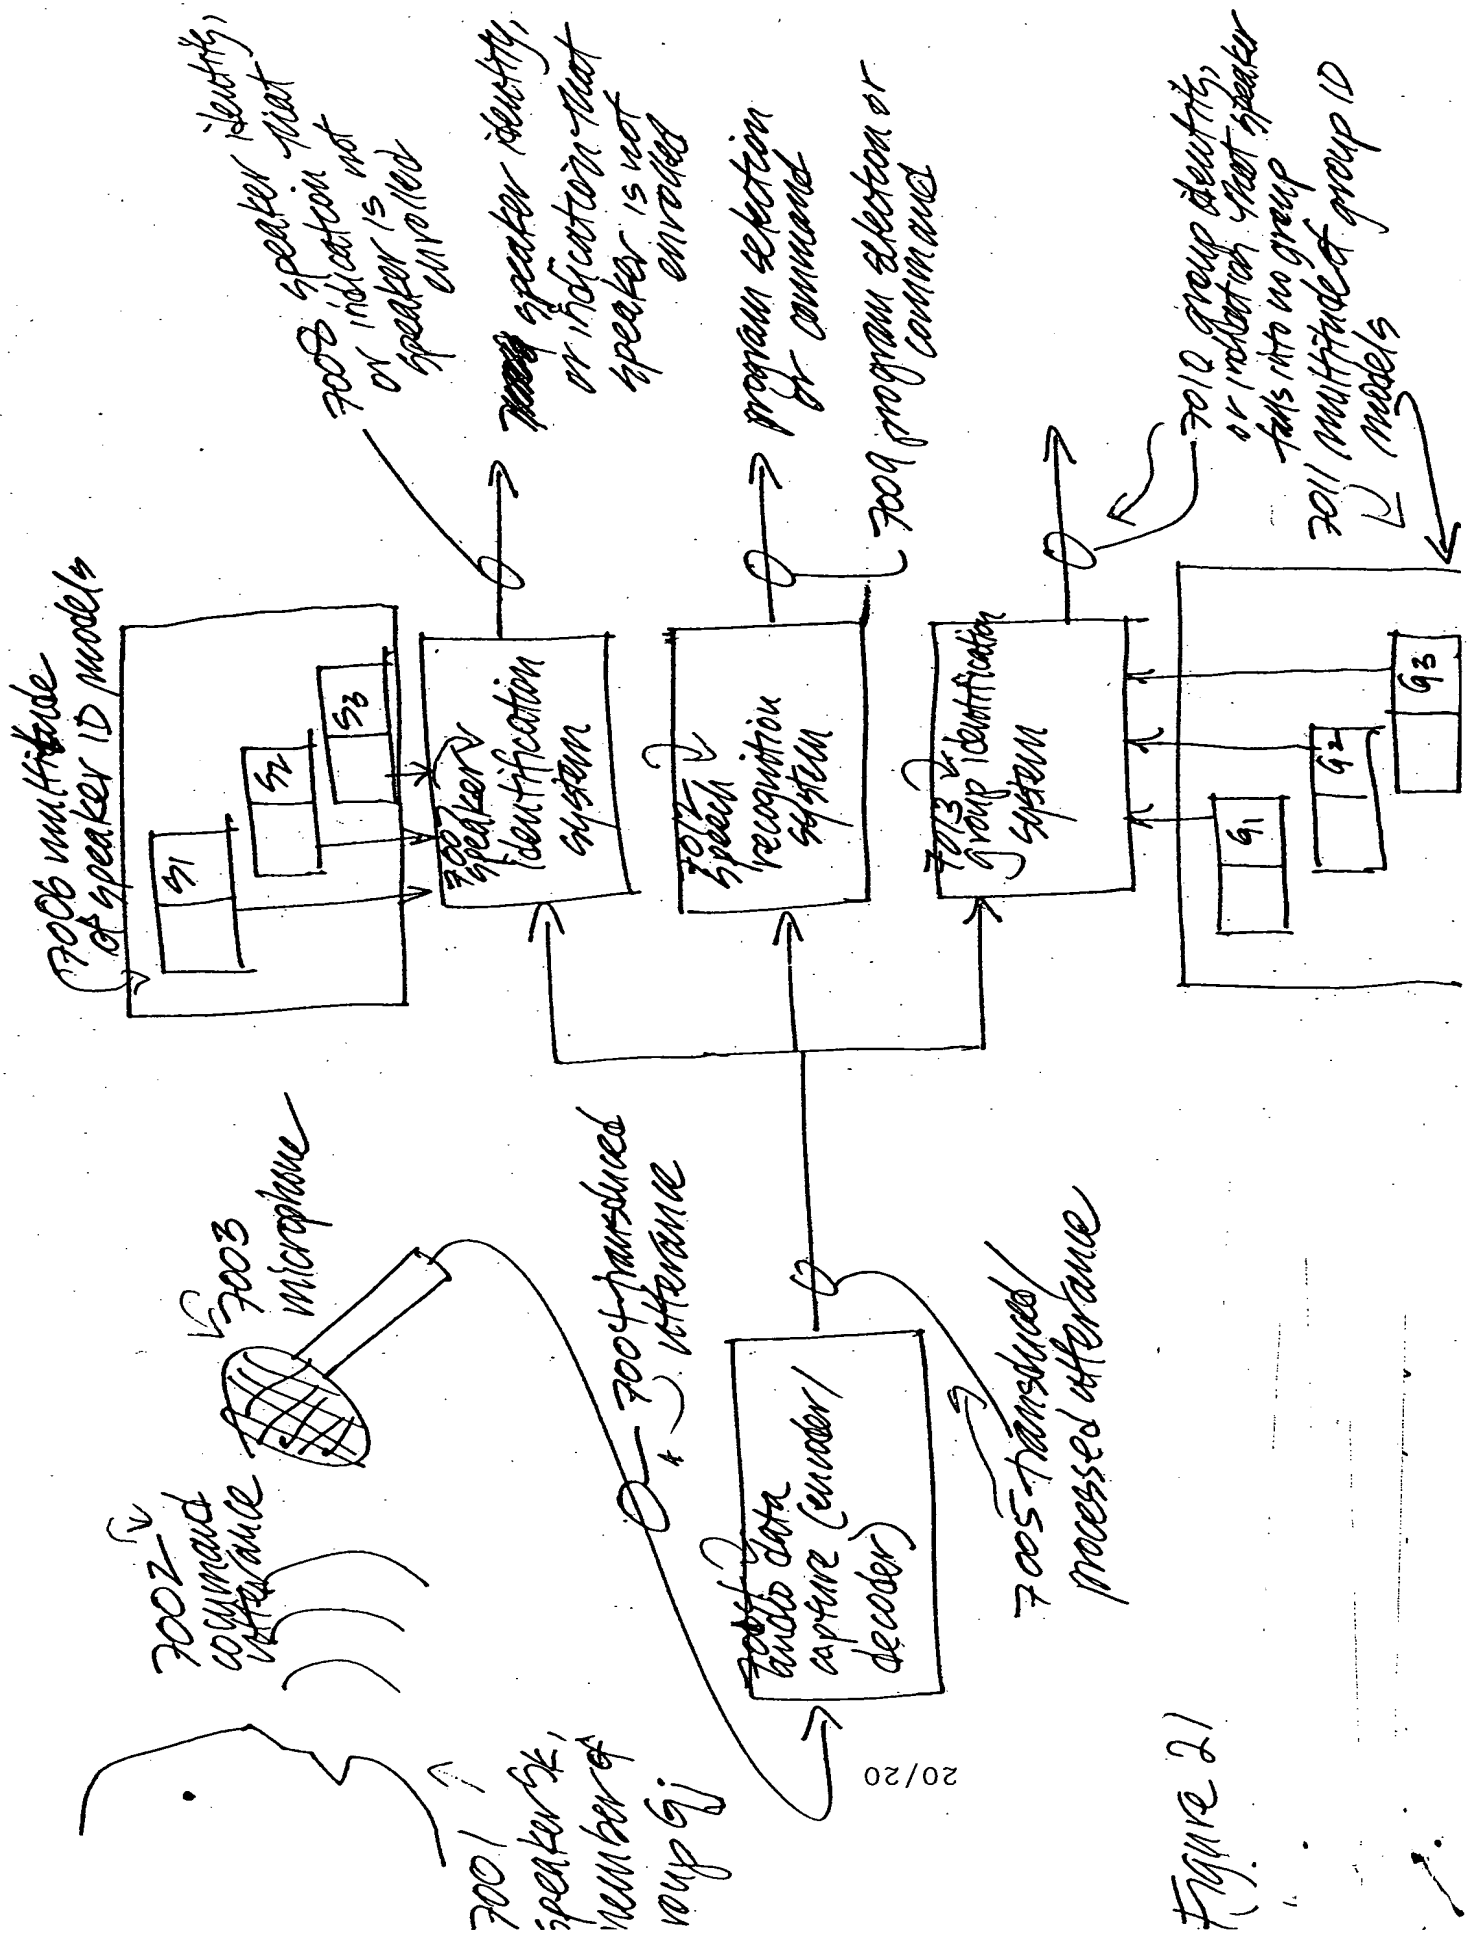 7001
speaker Sk,
member of
roup Gj
7002
command
utterance
7003
microphone
7004 transduced
utterance
audio data
capture (encoder/
decoder)
7005 transduced/
processed utterance
7006 multitude
of speaker ID models
S1
S2
S3
speaker
identification
system
7012
speech
recognition
system
7013
group identification
system
G1
G2
G3
7008 speaker identity,
or indication that
speaker is not
enrolled
speaker identity,
or indication that
speaker is not
enrolled
program selection
or command
7009 program selection or
command
7010 group identity,
or indication that speaker
falls into no group
7011 multitude of group ID
models
Figure 21
20/20